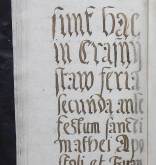 sunt hac
in Crastſ
staw feria
secunda ante
festum sancti
mathei Apo
stoli et